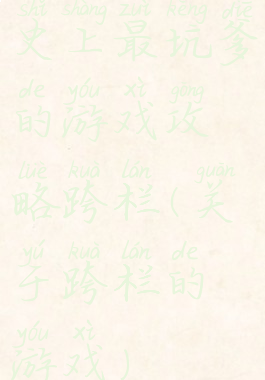 shǐ shàng zuì kēng diē
史上最坑爹
de yóu xì gōng
的游戏攻
lüè kuà lán guān
略跨栏(关
yú kuà lán de
于跨栏的
yóu xì
游戏)